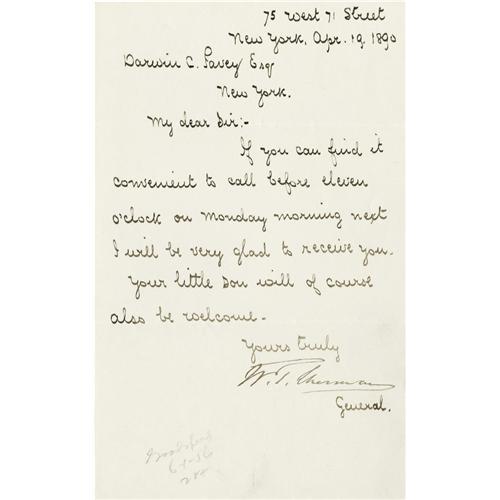 75 West 71 Street
New York, Apr. 19, 1890
Darwin C. Pavey Esq
New York.
My dear Sir:-
If you can find it
convenient to call before eleven
o'clock on Monday morning next
I will be very glad to receive you.
Your little son will of course
also be welcome.
Yours truly
W. T. Sherman
General.
Goodspeed